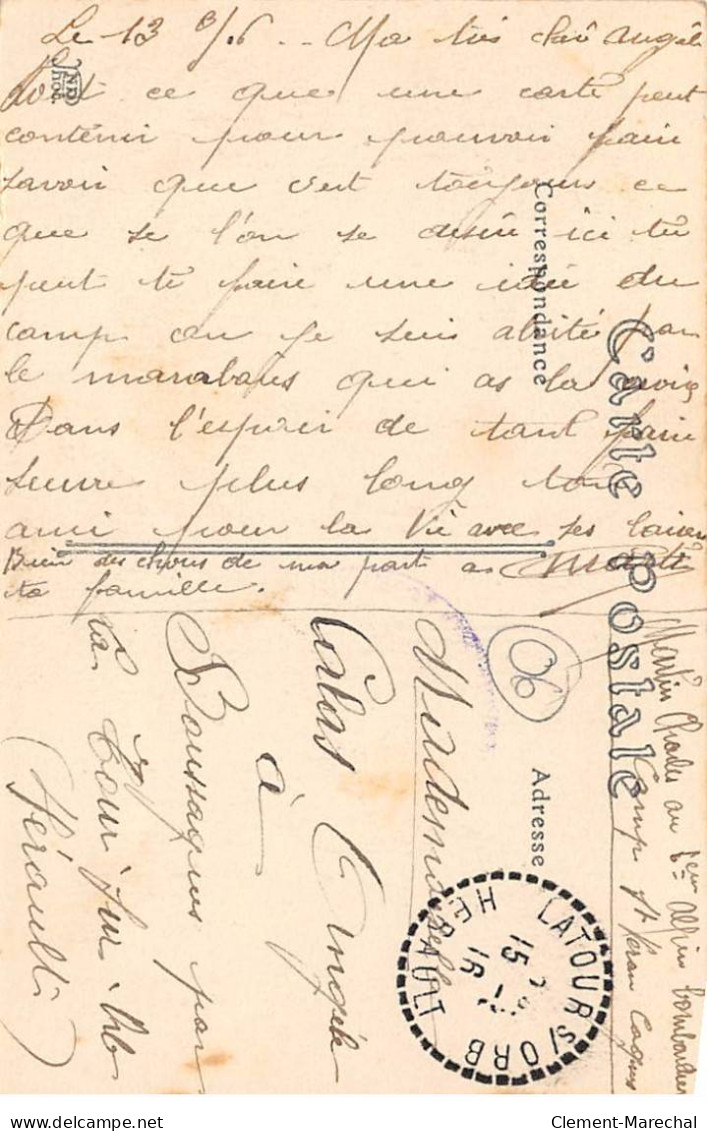 Le 13 8/16 - Ma très cher Angèle
soit ce que une carte peut
contenir pour pouvoir faire
savoir que c'est toujours ce
que se l'on se désire ici tu
peut te faire une idée du
camp ou je suis abrité par
le marabous qui as la croix
Dans l'espoir de tant faire
suivre plus long ton
ami pour la vie avec ses
Bien des choses de ma part a
ta famille. Martin
ND
Phot.
Correspondance
Carte Postale
Adresse
06
Martin Charles au 7ème alpin
Camp St Véran Cagnes
LATOUR S/ORB
HERAULT
15
16
Mademoiselle
Calas Angèle
à
Boussagues par
La Tour sur Orb
Hérault
Clement-Marechal